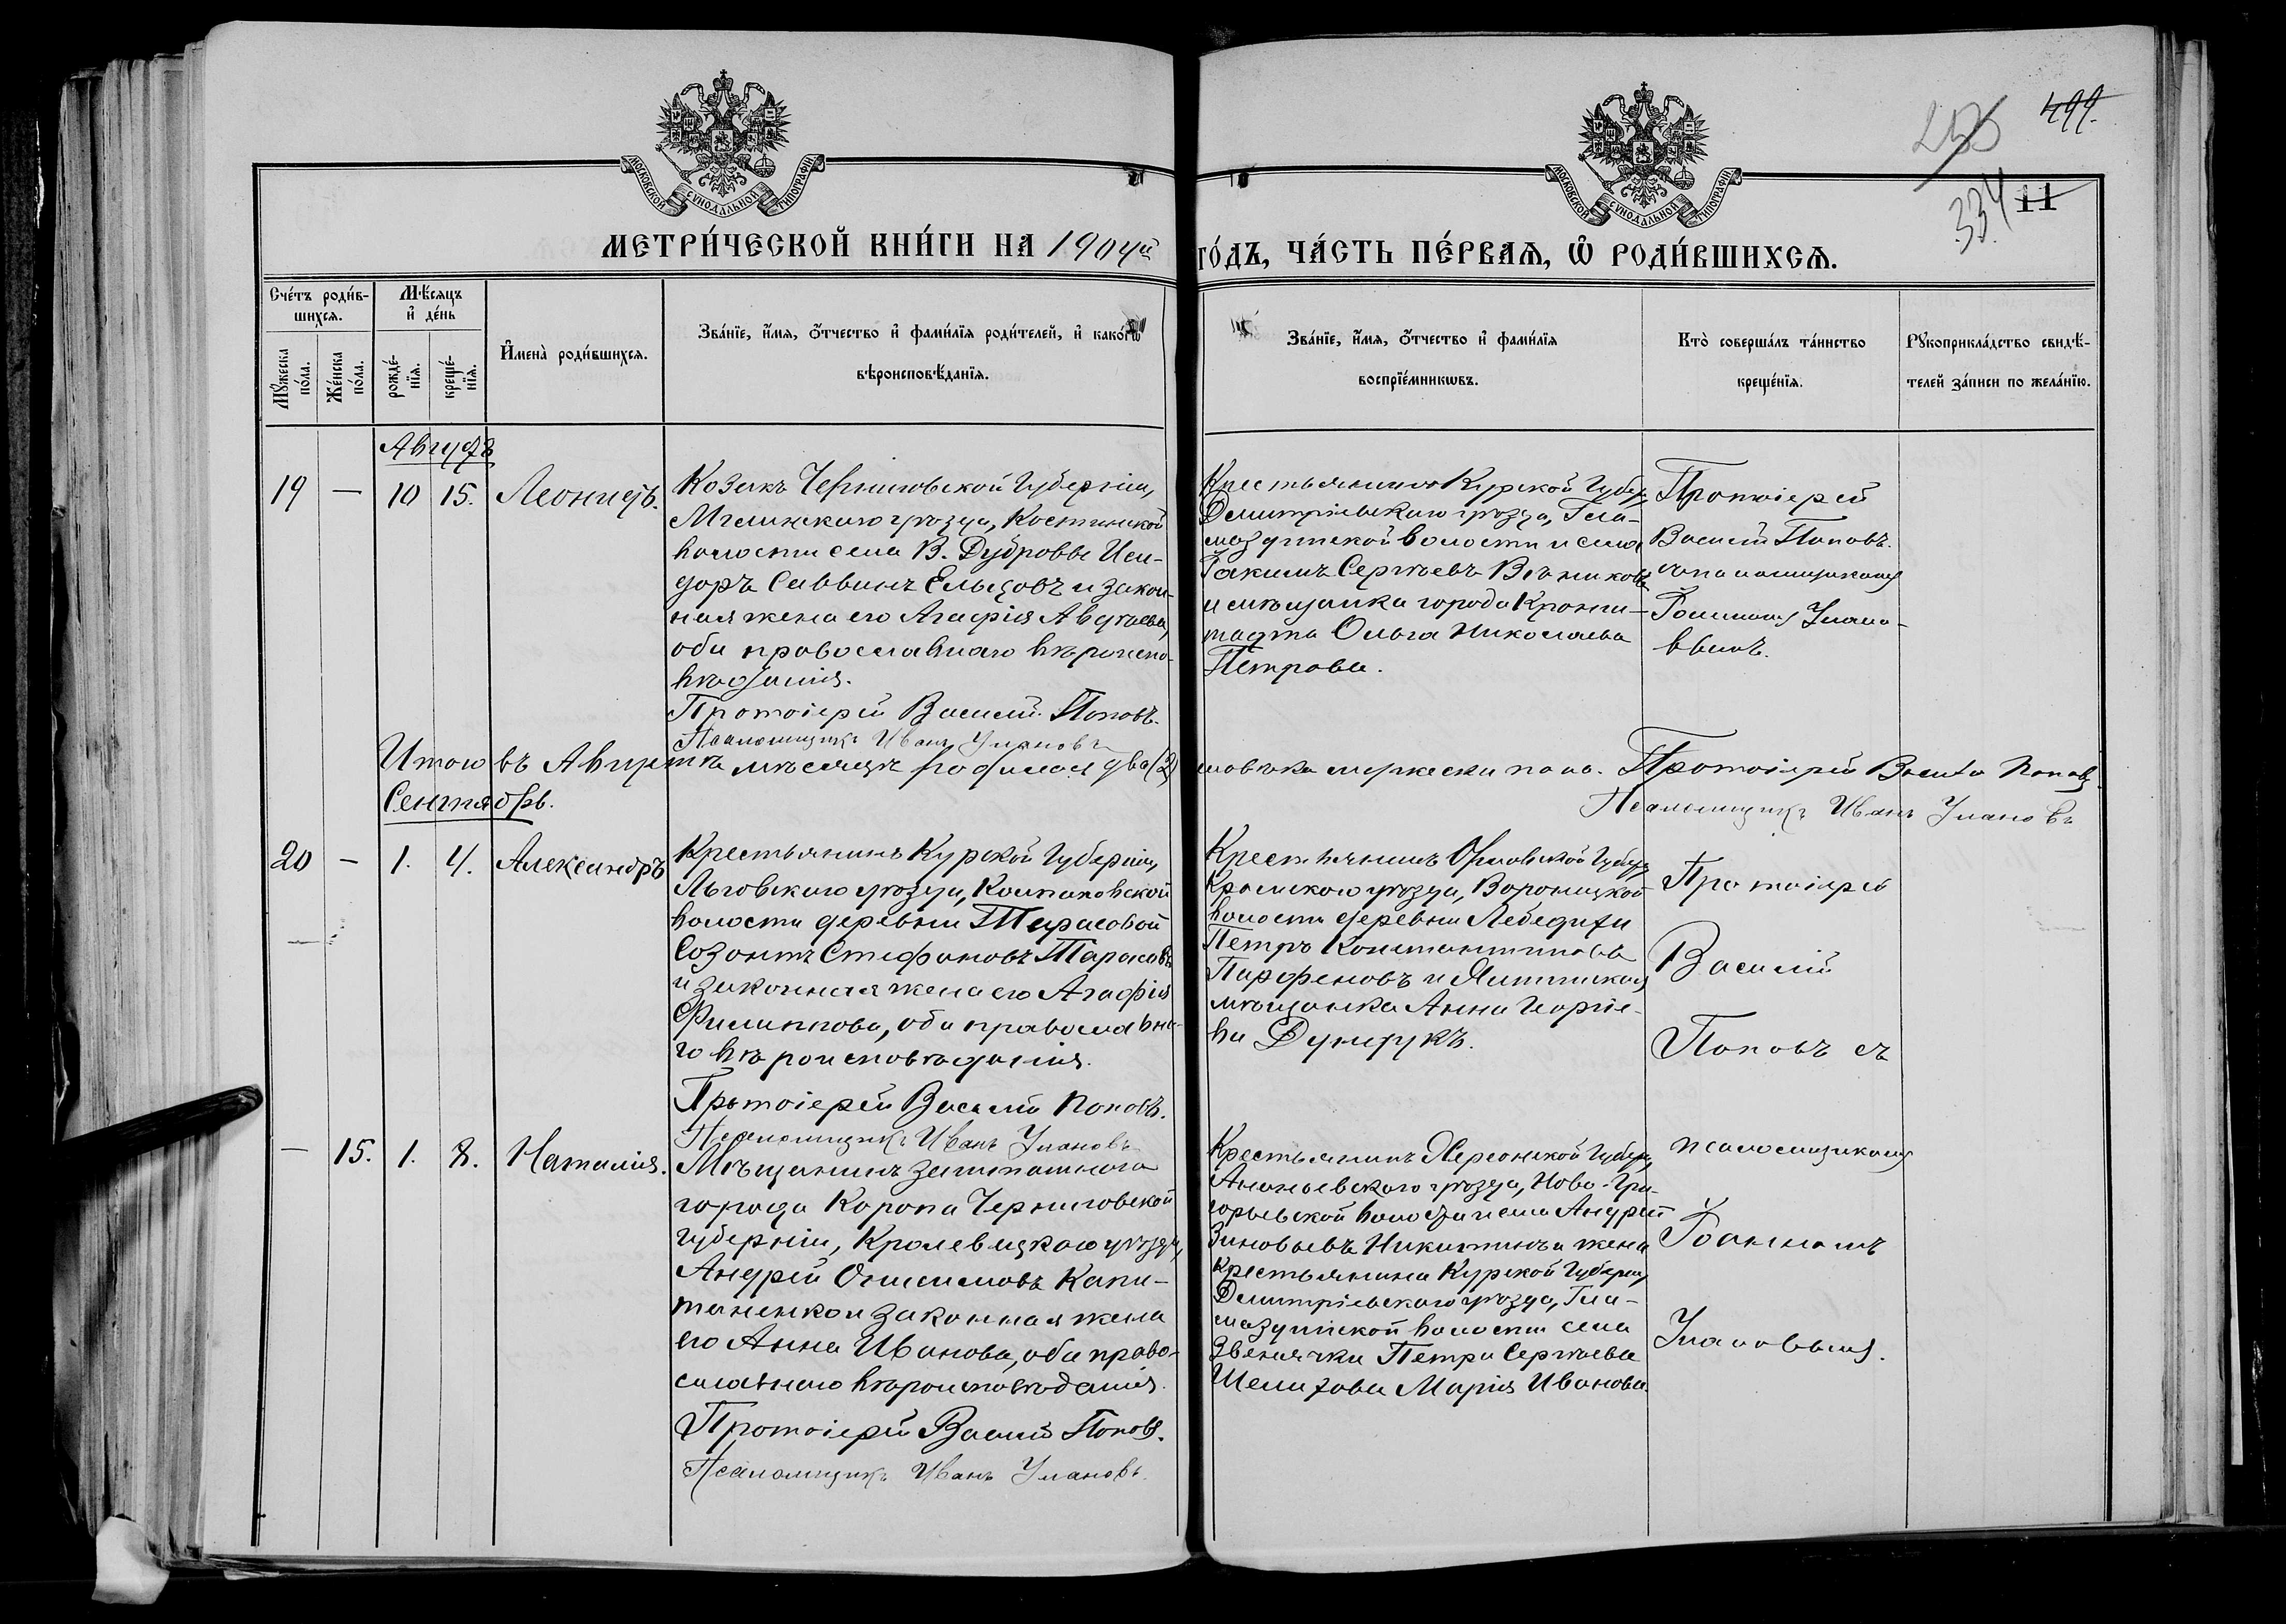 499.
255
334
11
МОСКОВСКОЙ СѴНОДАЛЬНОЙ ТИПОГРАФІИ
МОСКОВСКОЙ СѴНОДАЛЬНОЙ ТИПОГРАФІИ
МЕТРИ́ЧЕСКОЙ КНИ́ГИ НА 1904й
ГО́ДЪ, ЧА́СТЬ ПЕ́РВАѦ, Ѡ РОДИ́ВШИХСѦ.
Сче́тъ роди́в-
шихсѧ.
Мꙋ́жеска по́ла.
Же́нска по́ла.
Мѣ́сѧцъ и҆ де́нь
рожде́-нїѧ.
креще́-нїѧ.
И҆мена̀ роди́вшихсѧ.
Зва́нїе, и҆́мѧ, ѻ҆́тчество и҆ фами́лїѧ роди́телей, и҆ како́гѡ
вѣроисповѣ́данїѧ.
Зва́нїе, и҆́мѧ, ѻ҆́тчество и҆ фами́лїѧ
воспрїе́мникѡвъ.
Кто̀ соверша́лъ та́инство
креще́нїѧ.
Рꙋкоприкла́дство свидѣ́-
телей за́писи по жела́нїю.
Августъ
19 — 10 15. Леонидъ.
Козакъ Черниговской Губерніи,
Мглинскаго уѣзда, Костинской
волости села В. Дубровы Иси-
доръ Саввинъ Ельцовъ и закон-
ная жена его Агафія Авдѣева,
оба православнаго вѣроиспо-
вѣданія.
Протоіерей Василій Поповъ.
Псаломщикъ Иванъ Улановъ
Крестьянинъ Курской Губер.,
Дмитріевскаго уѣзда, Гла-
маздинской волости и села
Іакимъ Сергѣевъ Вѣниковъ
и мѣщанка города Кронш-
тадта Ольга Николаева
Петрова.
Протоіерей
Василій Поповъ.
съ псаломщикомъ
Іоанномъ Улано-
вымъ.
Итого въ Августѣ мѣсяцѣ родилося два (2) человѣка мужески пола. Протоіерей Василій Поповъ
Псаломщикъ Иванъ Улановъ
Сентябрь.
20 — 1. 4. Александръ
Крестьянинъ Курской Губерніи,
Льговскаго уѣзда, Колпаковской
волости деревни Тарасовой
Созонтъ Стефановъ Тарасовъ
и законная жена его Агафія
Филиппова, оба православна-
го вѣроисповѣданія.
Протоіерей Василій Поповъ.
Псаломщикъ Иванъ Улановъ
Крестьянинъ Орловской Губер.,
Кромскаго уѣзда,
волости деревни
Петръ Константиновъ
Парфеновъ и Ялтинская
мѣщанка Анна Георгіе-
ва
Протоіерей
Василій
Поповъ съ
— 15. 1. 8. Наталія.
Мѣщанинъ заштатнаго
города Коропа Черниговской
Губерніи, Кролевецкаго уѣзда,
Андрей Онисимовъ Капи-
таненко и законная жена
его Анна Иванова, оба право-
славнаго вѣроисповѣданія.
Протоіерей Василій Поповъ.
Псаломщикъ Иванъ Улановъ.
Крестьянинъ Херсонской Губер.,
Ананьевскаго уѣзда, Ново-Гри-
горьевской волости и села Андрей
Зиновьевъ Никитинъ и жена
крестьянина Курской Губерніи,
Дмитріевскаго уѣзда, Гла-
маздинской волости села
Звенячки Петра Сергѣева
Шелихова Марія Иванова.
псаломщикомъ
Іоанномъ
Улановымъ.